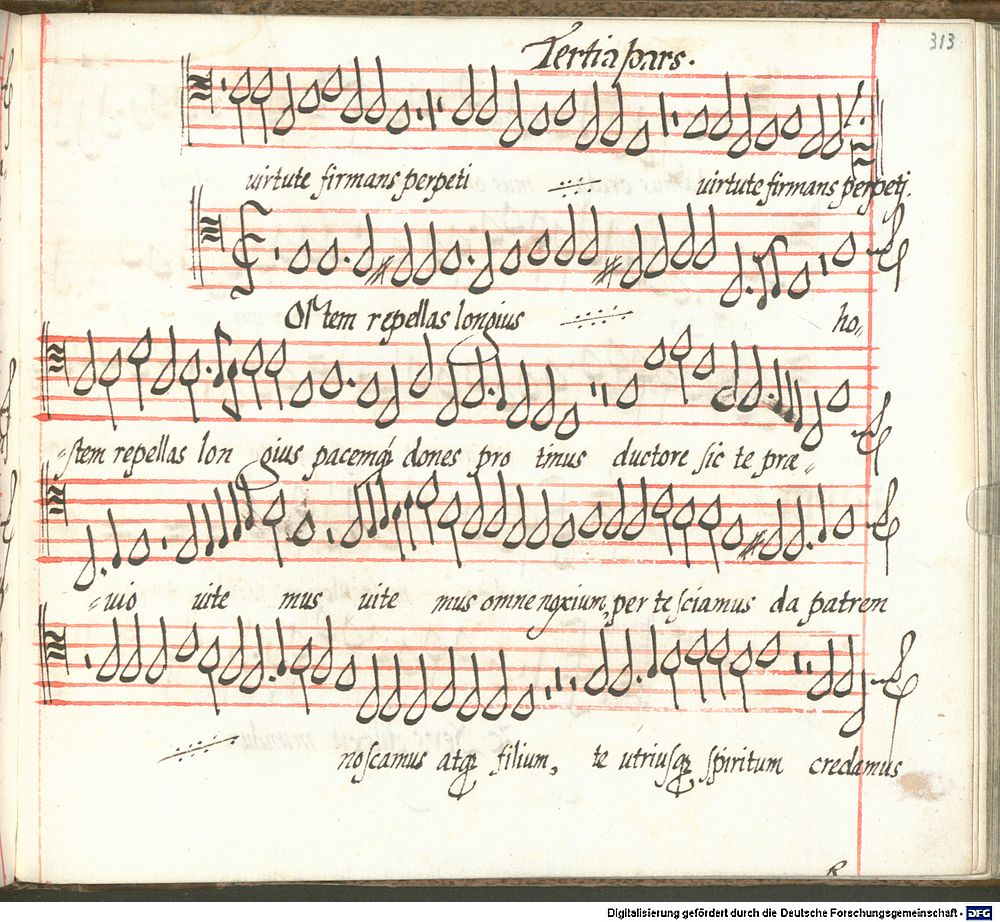 313
Tertia pars.
virtute firmans perpeti virtute firmans perpeti.
Ostem repellas longius ho„
„stem repellas lon gius pacemq́ dones pro timus ductore sic te præ„
„uio uite mus uite mus omne noxium, per te sciamus da patrem
noscamus atq; filium, te utriusq; spiritum credamus
R
Digitalisierung gefördert durch die Deutsche Forschungsgemeinschaft - DFG